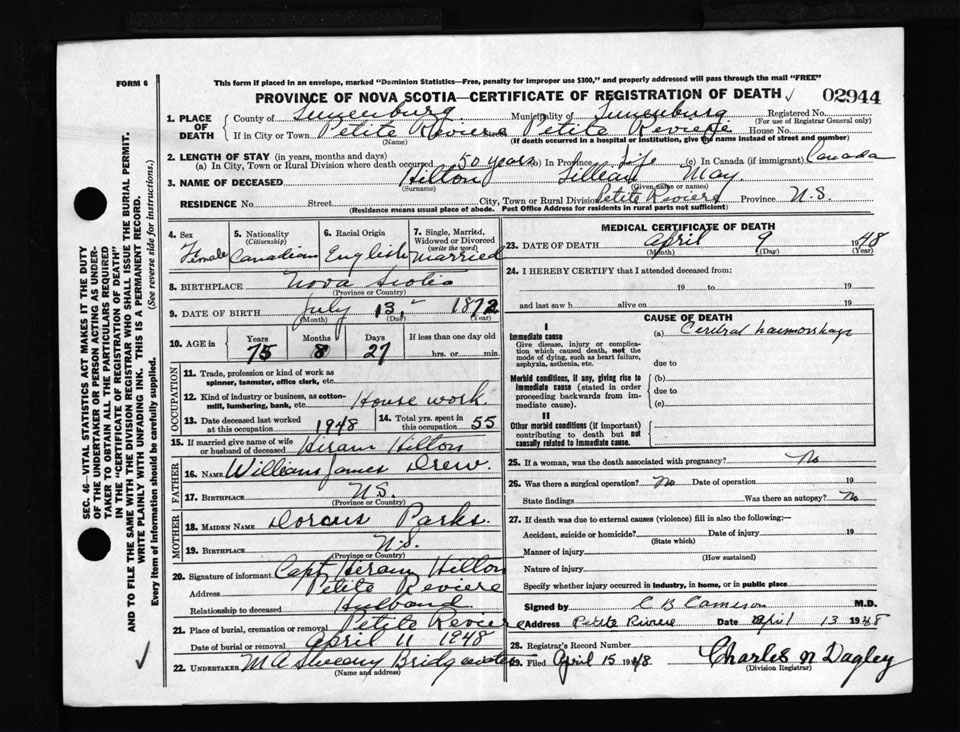 FORM 6
This form if placed in an envelope, marked "Dominion Statistics—Free, penalty for improper use $300," and properly addressed will pass through the mail "FREE"
PROVINCE OF NOVA SCOTIA—CERTIFICATE OF REGISTRATION OF DEATH 02944
1. PLACE OF DEATH County of Lunenburg Municipality of Lunenburg Registered No.
(For use of Registrar General only)
If in City or Town Petite Reviere Petite Reviere House No.
(Name) (If death occurred in a hospital or institution, give the name instead of street and number)
2. LENGTH OF STAY (in years, months and days)
(a) In City, Town or Rural Division where death occurred 50 years (b) In Province Life (c) In Canada (if immigrant) Canada
3. NAME OF DECEASED Hilton Lillian May.
(Surname) (Given name or names)
RESIDENCE No. Street City, Town or Rural Division Petite Reviere Province N.S.
(Residence means usual place of abode. Post Office Address for residents in rural parts not sufficient)
4. Sex Female
5. Nationality (Citizenship) Canadian
6. Racial Origin English
7. Single, Married, Widowed or Divorced (write the word) Married
8. BIRTHPLACE Nova Scotia
(Province or Country)
9. DATE OF BIRTH July 13, 1872
(Month) (Day) (Year)
10. AGE in Years Months Days If less than one day old
75 8 27 hrs. or min.
OCCUPATION
11. Trade, profession or kind of work as spinner, teamster, office clerk, etc.
12. Kind of industry or business, as cotton-mill, lumbering, bank, etc. House work.
13. Date deceased last worked at this occupation 1948 14. Total yrs. spent in this occupation 55
15. If married give name of wife or husband of deceased Hiram Hilton
FATHER
16. NAME William James Drew.
17. BIRTHPLACE N.S.
(Province or Country)
MOTHER
18. MAIDEN NAME Dorcus Parks.
19. BIRTHPLACE N.S.
(Province or Country)
20. Signature of informant Capt Hiram Hilton
Address Petite Reviere
Relationship to deceased Husband
21. Place of burial, cremation or removal Petite Reviere
Date of burial or removal April 11 1948
22. UNDERTAKER M A Sweeny Bridgewater
(Name and address)
MEDICAL CERTIFICATE OF DEATH
23. DATE OF DEATH April 9 1948
(Month) (Day) (Year)
24. I HEREBY CERTIFY that I attended deceased from:
19 to 19
and last saw h alive on 19
CAUSE OF DEATH
I
Immediate cause
Give disease, injury or complication which caused death, not the mode of dying, such as heart failure, asphyxia, asthenia, etc.
(a) Cerebral haemorrhage
due to
Morbid conditions, if any, giving rise to immediate cause (stated in order proceeding backwards from immediate cause).
(b)
due to
(c)
II
Other morbid conditions (if important) contributing to death but not causally related to immediate cause.
25. If a woman, was the death associated with pregnancy? No
26. Was there a surgical operation? No Date of operation 19
State findings Was there an autopsy? No
27. If death was due to external causes (violence) fill in also the following:—
Accident, suicide or homicide? Date of injury 19
(State which)
Manner of injury
(How sustained)
Nature of injury
Specify whether injury occurred in industry, in home, or in public place
Signed by C B Cameron M.D.
Address Petite Riviere Date April 13 1948
28. Registrar's Record Number
29. Filed April 15 1948 Charles N Dagley
(Division Registrar)
SEC. 46—VITAL STATISTICS ACT MAKES IT THE DUTY
OF THE UNDERTAKER OR PERSON ACTING AS UNDER-
TAKER TO OBTAIN ALL THE PARTICULARS REQUIRED
IN THE "CERTIFICATE OF REGISTRATION OF DEATH"
AND TO FILE THE SAME WITH THE DIVISION REGISTRAR WHO SHALL ISSUE THE BURIAL PERMIT.
WRITE PLAINLY WITH UNFADING INK. THIS IS A PERMANENT RECORD.
Every item of information should be carefully supplied. (See reverse side for instructions.)